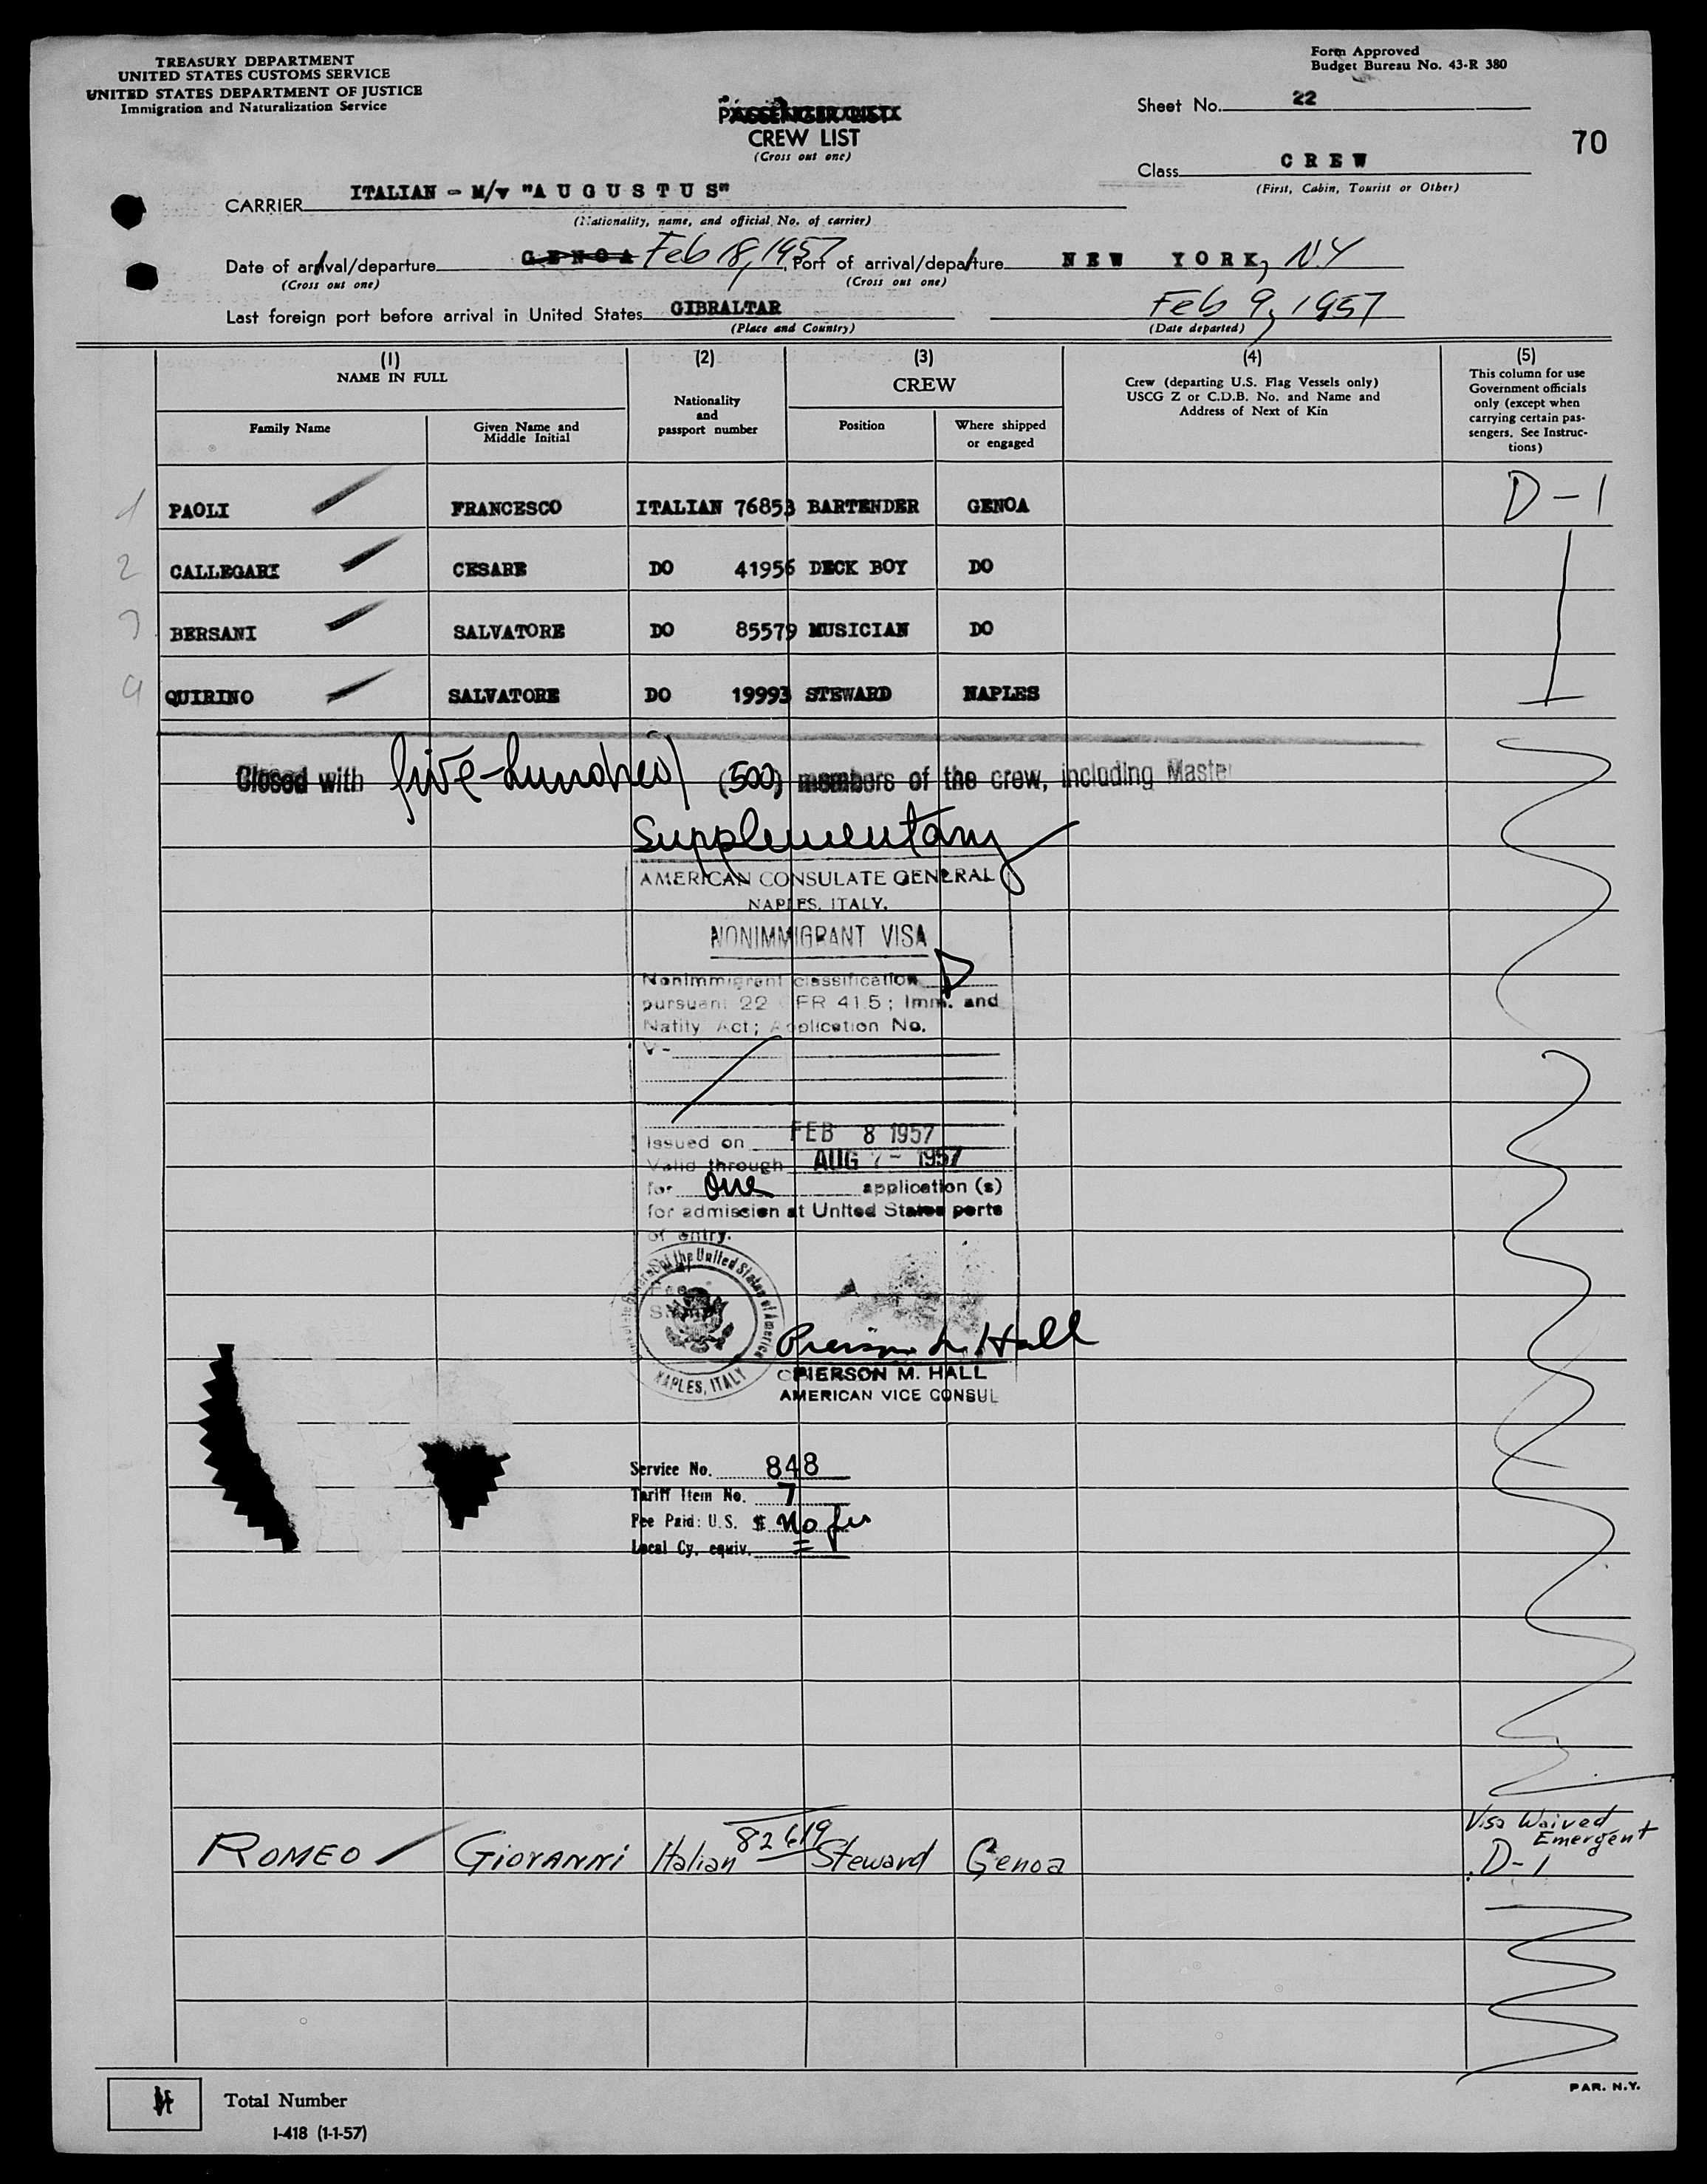 TREASURY DEPARTMENT
UNITED STATES CUSTOMS SERVICE
UNITED STATES DEPARTMENT OF JUSTICE
Immigration and Naturalization Service
Form Approved
Budget Bureau No. 43-R 380
PASSENGER LIST
CREW LIST
(Cross out one)
Sheet No. 22
70
Class CREW
(First, Cabin, Tourist or Other)
CARRIER ITALIAN - M/v "AUGUSTUS"
(Nationality, name, and official No. of carrier)
Date of arrival/departure GENOA Feb 18, 1957 Port of arrival/departure NEW YORK, NY
(Cross out one) (Cross out one)
Last foreign port before arrival in United States GIBRALTAR Feb 9, 1957
(Place and Country) (Date departed)
(1) (2) (3) (4) (5)
NAME IN FULL
Family Name
Given Name and
Middle Initial
Nationality
and
passport number
CREW
Position
Where shipped
or engaged
Crew (departing U.S. Flag Vessels only)
USCG Z or C.D.B. No. and Name and
Address of Next of Kin
This column for use
Government officials
only (except when
carrying certain pas-
sengers. See Instruc-
tions)
1 PAOLI FRANCESCO ITALIAN 76853 BARTENDER GENOA D-1
2 CALLEGARI CESARE DO 41956 DECK BOY DO
3 BERSANI SALVATORE DO 85579 MUSICIAN DO
4 QUIRINO SALVATORE DO 19993 STEWARD NAPLES
Closed with five-hundred (500) members of the crew, including Master
Supplementary
AMERICAN CONSULATE GENERAL
NAPLES, ITALY.
NONIMMIGRANT VISA
Nonimmigrant classification D
pursuant 22 CFR 41.5; Imm. and
Natlty Act; Application No.
V-
Issued on FEB 8 1957
Valid through AUG 7- 1957
for one application (s)
for admission at United States ports
of entry.
of the United States of America
NAPLES, ITALY
Pierson M. Hall
PIERSON M. HALL
AMERICAN VICE CONSUL
Service No. 848
Tariff Item No. 7
Fee Paid: U.S. $ No fee
Local Cy. equiv. =
ROMEO GIOVANNI Italian 82619 Steward Genoa
Visa Waived
Emergent
D-1
Total Number
I-418 (1-1-57)
PAR. N.Y.